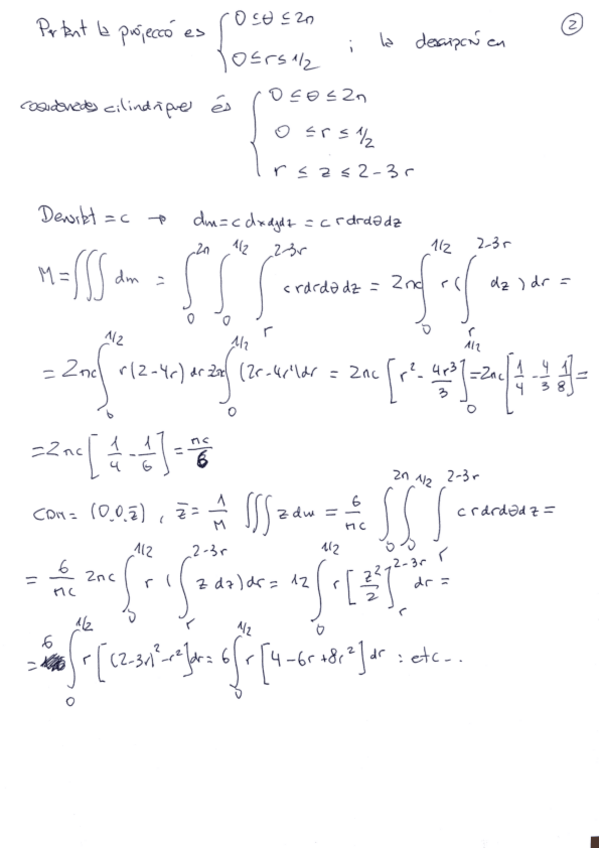 Per tant la projecció es { 0 ≤ θ ≤ 2π
0 ≤ r ≤ 1/2 ; i la descripció en
②
coordenades cilindriques és { 0 ≤ θ ≤ 2π
0 ≤ r ≤ 1/2
r ≤ z ≤ 2-3r
Densitat = c → dm = c dxdydz = c r dr dθ dz
M = ∭ dm = ∫_0^{2π} ∫_0^{1/2} ∫_r^{2-3r} c r dr dθ dz = 2πc ∫_0^{1/2} r ( ∫_r^{2-3r} dz ) dr =
= 2πc ∫_0^{1/2} r(2-4r) dr = 2πc ∫_0^{1/2} (2r-4r²) dr = 2πc [ r² - 4r³/3 ]_0^{1/2} = 2πc [ 1/4 - 4/3 1/8 ] =
= 2πc [ 1/4 - 1/6 ] = πc/6
CDM = (0,0,z̄) , z̄ = 1/M ∭ z dm = 6/πc ∫_0^{2π} ∫_0^{1/2} ∫_r^{2-3r} c r dr dθ dz =
= 6/πc 2πc ∫_0^{1/2} r ( ∫_r^{2-3r} z dz ) dr = 12 ∫_0^{1/2} r [ z²/2 ]_r^{2-3r} dr =
= 6 ∫_0^{1/2} r [ (2-3r)² - r² ] dr = 6 ∫_0^{1/2} r [ 4-6r+8r² ] dr : etc...